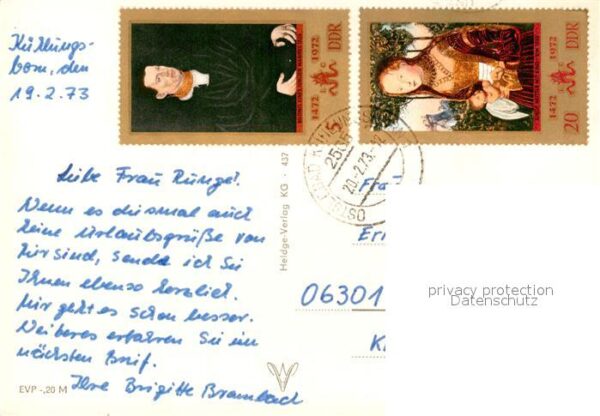 Kühlungs-
born, den
19.2.73
Liebe Frau Runge!
Wenn es diesmal auch
keine Urlaubsgrüße von
hir sind, sende ich Sie
Ihnen ebenso herzlich.
Mir geht es schon besser.
Weiteres erfahren Sie im
nächsten Brief.
Ihre Brigitte Brambach
EVP -,20 M
Heldge-Verlag KG · 437
1472 1972
DDR
1472 1972
DDR
20
5
2565
20.-2.73.-12
OSTSEEBAD KÜHLUNGSBORN
Fra
Er
06301
K
privacy protection
Datenschutz